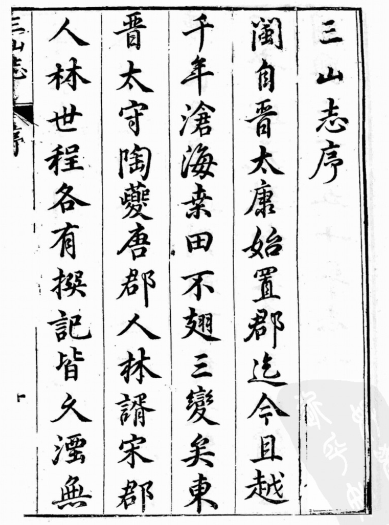 三山志序
閩自晉太康始置郡迄今且越
千年滄海桒田不翅三變矣東
晉太守陶夔唐郡人林諝宋郡
人林世程各有撰記皆久湮無
三山志
序